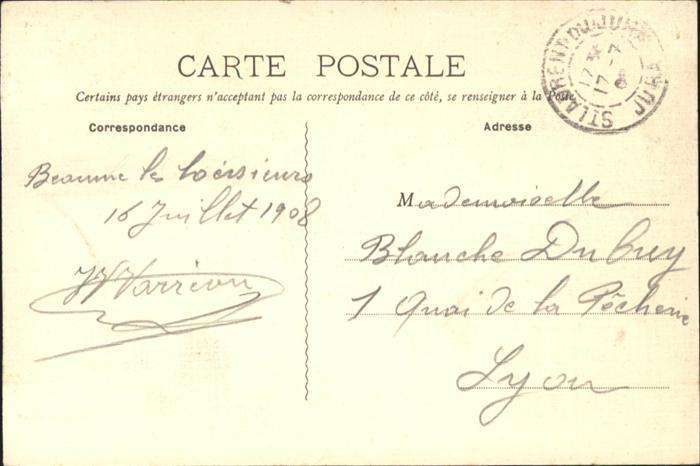 CARTE POSTALE
Certains pays étrangers n'acceptant pas la correspondance de ce côté, se renseigner à la Poste
Correspondance
Adresse
ST LAURENT DU JURA
JURA
17 - 7
08
Beaume les
16 Juillet 1908
Mademoiselle
Blanche Dubuy
1 Quai de la Pêcherie
Lyon